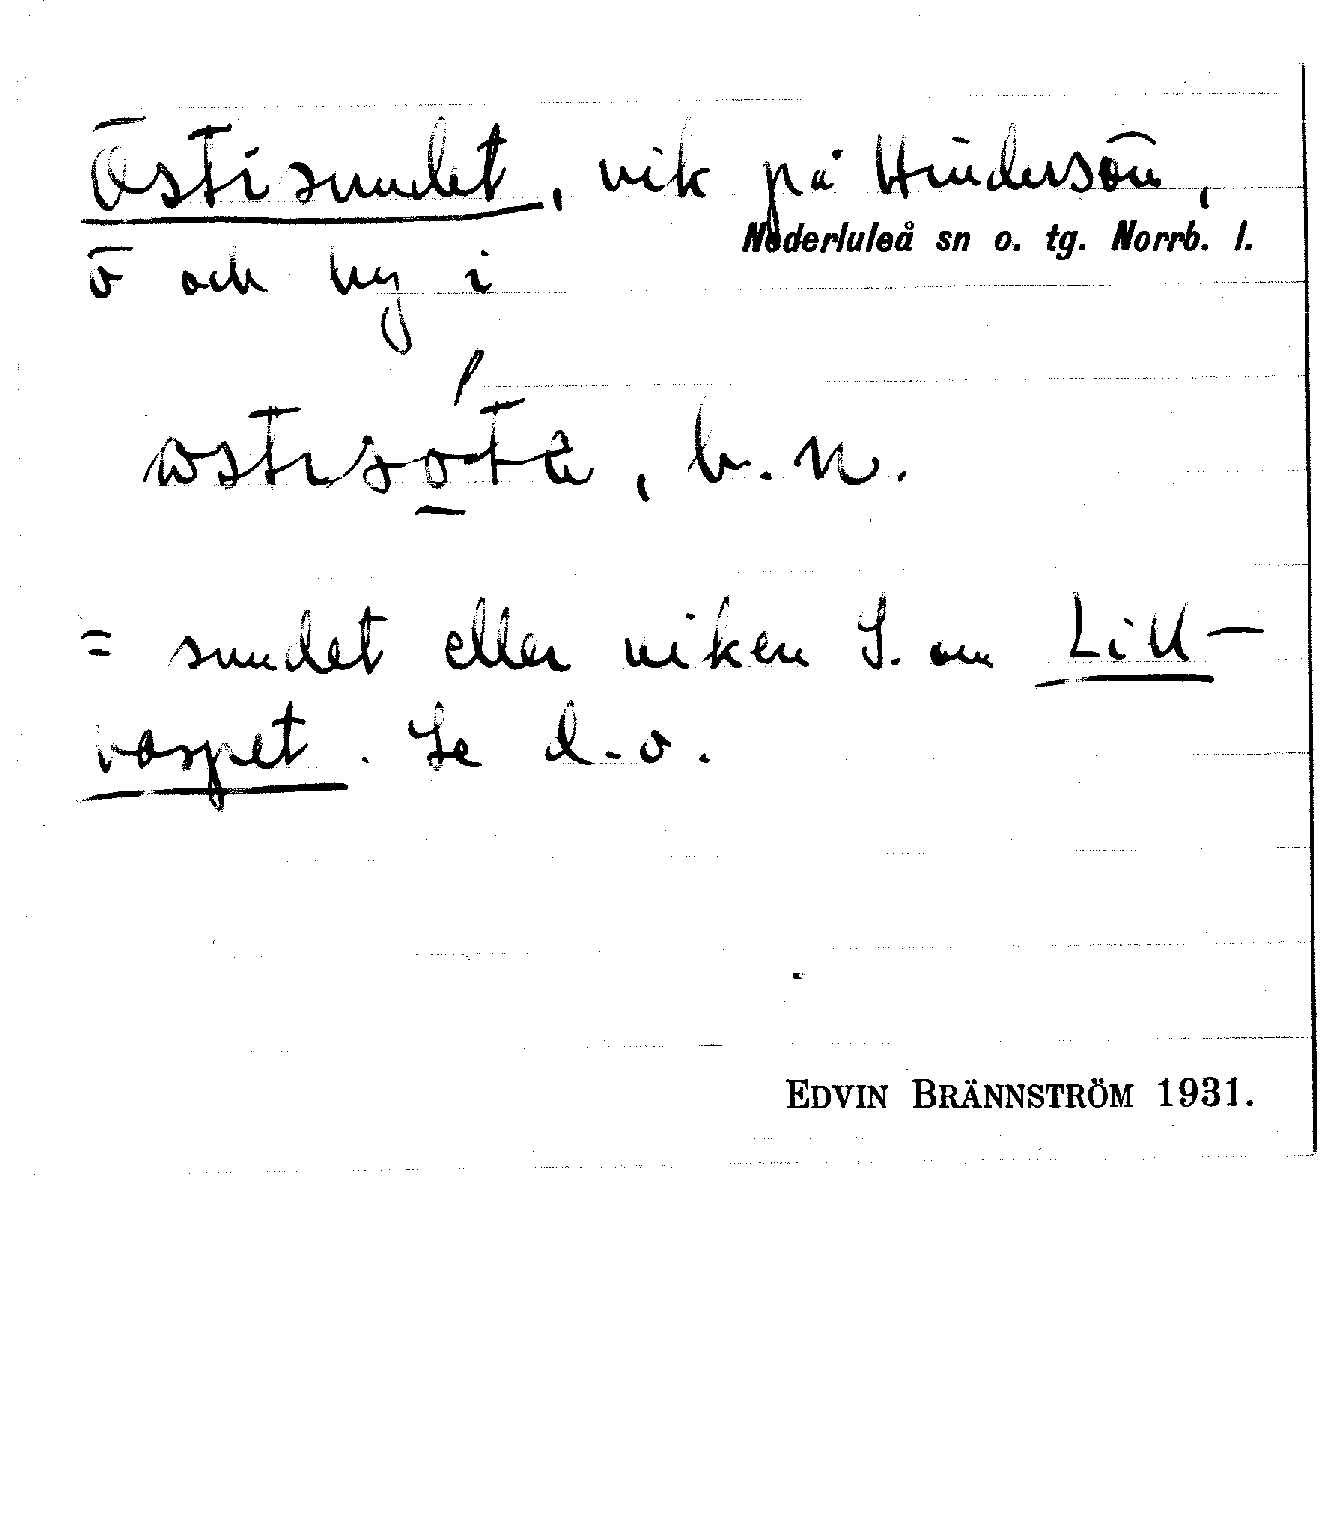 Östisundet, vik på Hindersön,
Nederluleå sn o. tg. Norrb. l.
ö och by i
b. n.
= sundet eller viken S. om Lill-
vaspet. Se d. o.
EDVIN BRÄNNSTRÖM 1931.